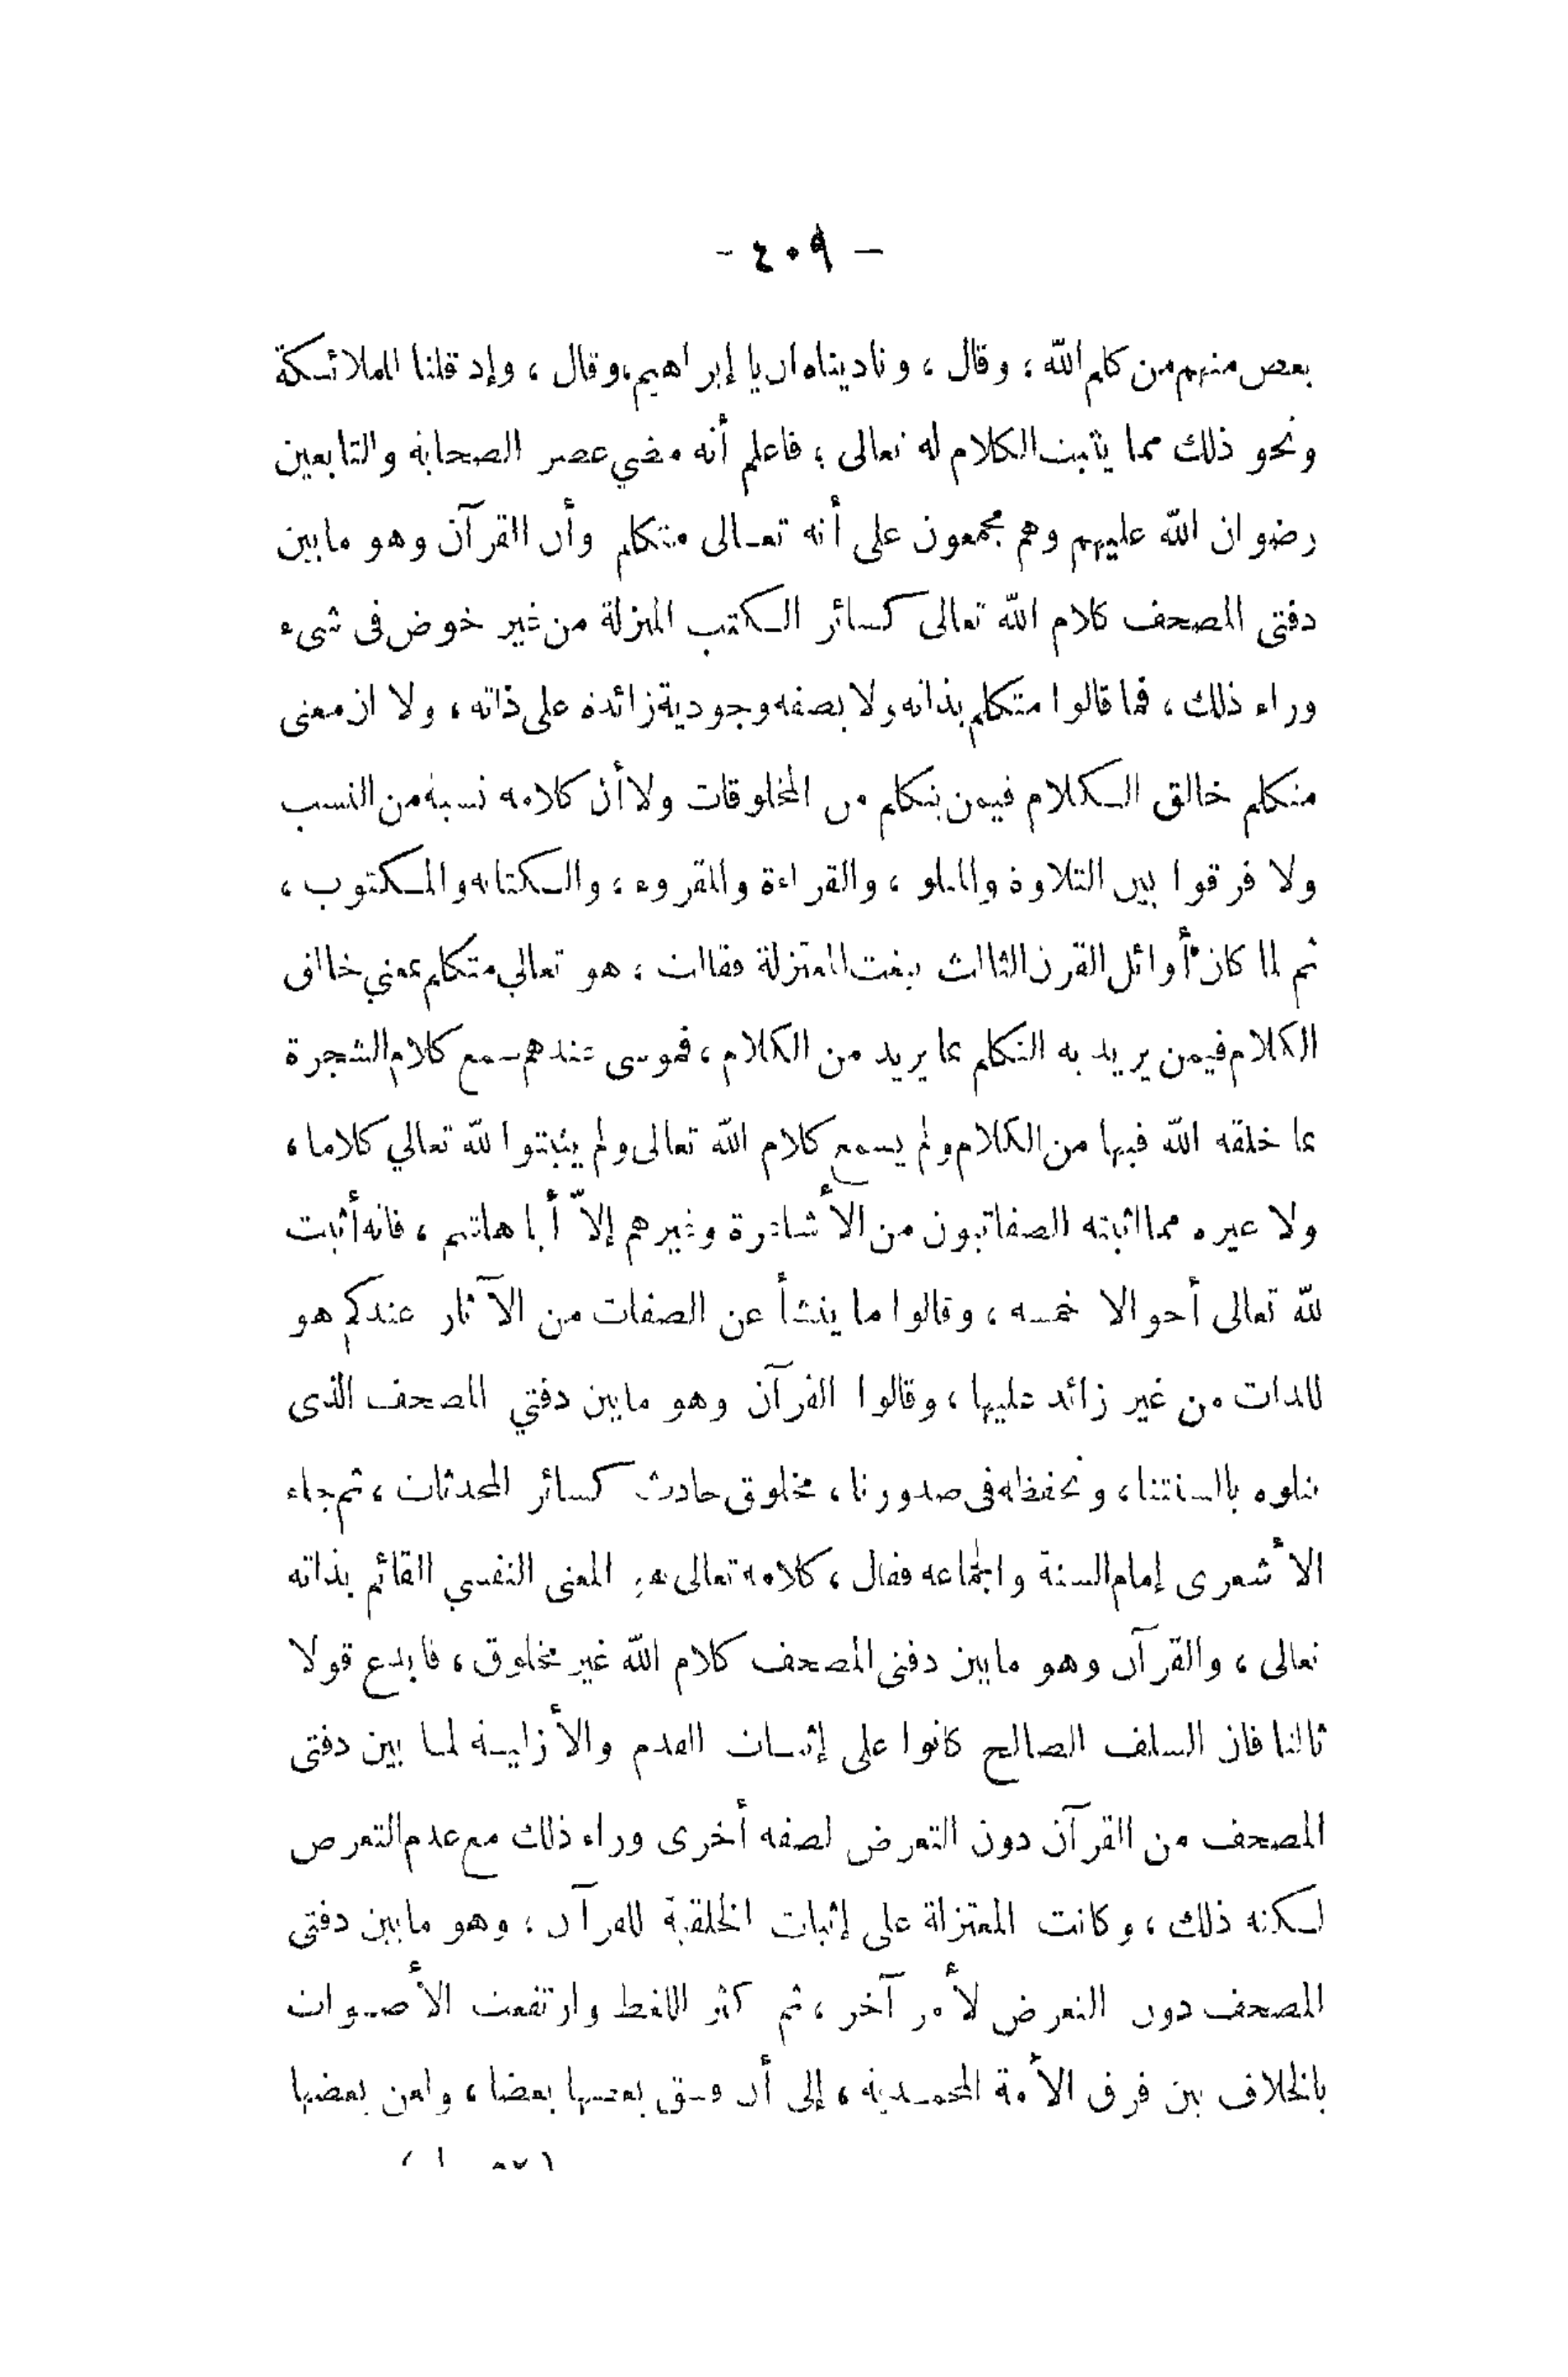 - ٤٠٩ -
بعض منهم من كلم الله ، وقال ، وناديناه ان يا إبراهيم، وقال ، وإد قلنا للملائكة
ونحو ذلك مما يثبت الكلام له تعالى ؛ فاعلم أنه مضي عصر الصحابة والتابعين
رضوان الله عليهم وهم مجمعون على أنه تعالى متكلم وأن القرآن وهو مابين
دفتى المصحف كلام الله تعالى كسائر الكتب المنزلة من غير خوض فى شىء
وراء ذلك ، فما قالوا متكلم بذاته ولا بصفه وجودية زائدة على ذاته ، ولا ان معنى
متكلم خالق الكلام فيمن يتكلم من المخلوقات ولا أن كلامه نسبة من النسب
ولا فرقوا بين التلاوة والمتلو ، والقراءة والمقروء ، والكتابه والمكتوب ،
ثم لما كان أوائل القرن الثالث نبغت المعتزلة فقالت ، هو تعالي متكلم بمعني خالق
الكلام فيمن يريد به التكلم بما يريد من الكلام ، فموسى عندهم سمع كلام الشجرة
بما خلقه الله فيها من الكلام ولم يسمع كلام الله تعالى ولم يثبتوا لله تعالي كلاما ،
ولا عيره مما اثبته الصفاتيون من الأشاعرة وغيرهم إلاّ أبا هاشم ، فانه أثبت
لله تعالى أحوالا خمسه ، وقالوا ما ينشأ عن الصفات من الآثار عندكم هو
للدات من غير زائد عليها ، وقالوا القرآن وهو مابين دفتي المصحف الذى
نتلوه بالسنتنا ، ونحفظه فى صدورنا ، مخلوق حادث كسائر المحدثات ، ثم جاء
الأشعرى إمام السنة والجماعه فقال ، كلامه تعالى هو المعنى النفسي القائم بذاته
تعالى ، والقرآن وهو مابين دفتى المصحف كلام الله غير مخلوق ، فابدع قولا
ثالثا فان السلف الصالح كانوا على إثبات القدم والأزلية لما بين دفتى
المصحف من القرآن دون التعرض لصفه أخرى وراء ذلك مع عدم التعرض
لكنه ذلك ، وكانت المعتزلة على إثبات الخلقية للقرآن ، وهو مابين دفتى
المصحف دون التعرض لأمر آخر ، ثم كثر اللغط وارتفعت الأصوات
بالخلاف بين فرق الأمة المحمدية ، إلى أن فسق بعضها بعضا ، ولعن بعضها